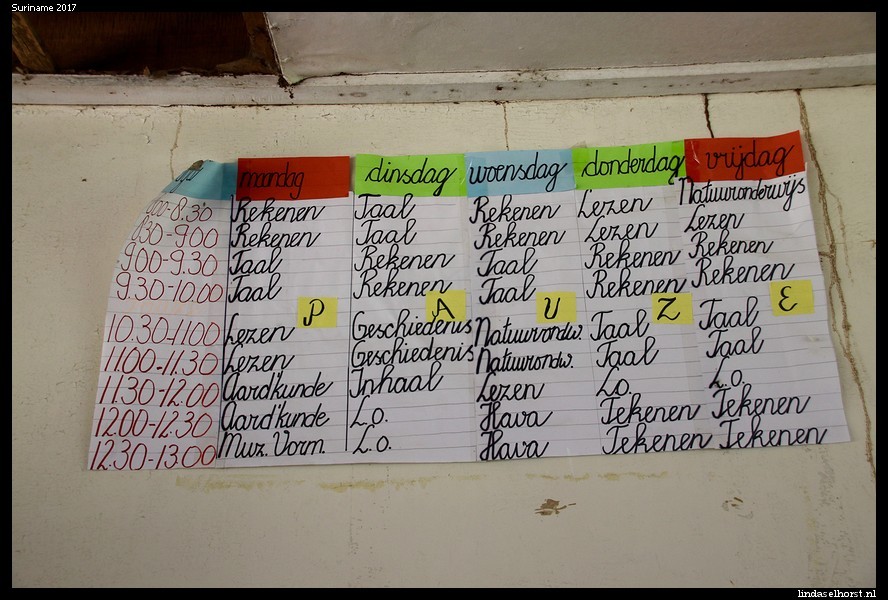 Suriname 2017
maandag dinsdag woensdag donderdag vrijdag
8.30 Rekenen Taal Rekenen Lezen Natuuronderwijs
8.30-9.00 Rekenen Taal Rekenen Lezen Lezen
9.00-9.30 Taal Rekenen Taal Rekenen Rekenen
9.30-10.00 Taal Rekenen Taal Rekenen Rekenen
P A U Z E
10.30-11.00 Lezen Geschiedenis Natuurondw. Taal Taal
11.00-11.30 Lezen Geschiedenis Natuurondw. Taal Taal
11.30-12.00 Aardkunde Inhaal Lezen L.o. L.o.
12.00-12.30 Aardkunde L.o. Hava Tekenen Tekenen
12.30-13.00 Muz. Vorm. L.o. Hava Tekenen Tekenen
lindaselhorst.nl